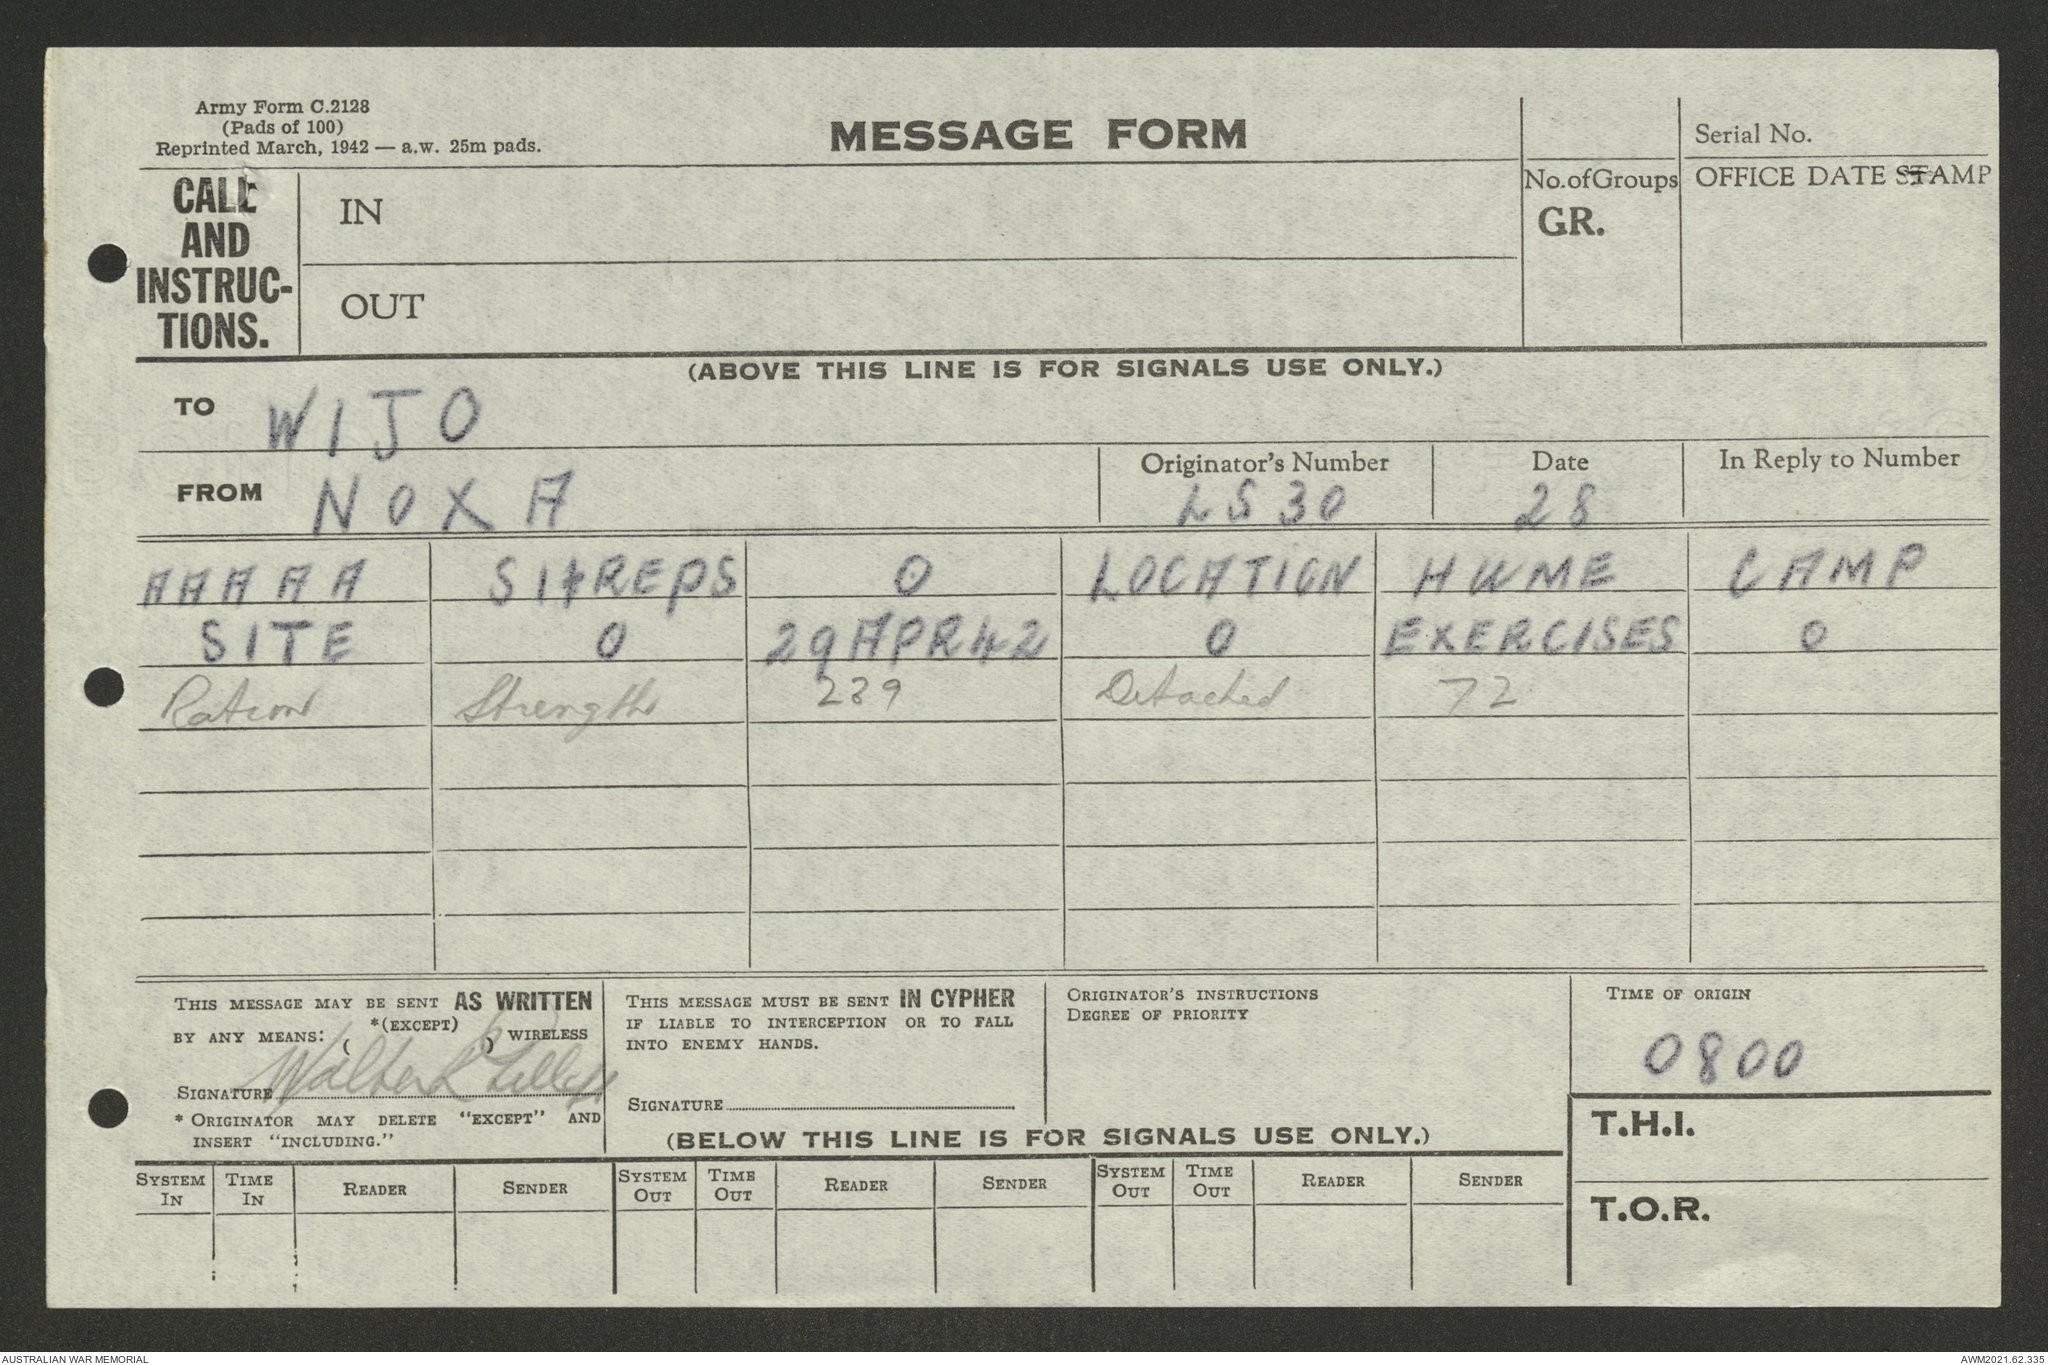 Army Form C.2128
(Pads of 100)
Reprinted March, 1942 — a.w. 25m pads.
MESSAGE FORM
Serial No.
CALL AND INSTRUC- TIONS.
IN
OUT
No.ofGroups
GR.
OFFICE DATE STAMP
(ABOVE THIS LINE IS FOR SIGNALS USE ONLY.)
TO WIJO
FROM NOXA
Originator's Number LS30
Date 28
In Reply to Number
AAAAA SITREPS O LOCATION HUME CAMP
SITE O 29APR42 O EXERCISES O
Ration Strength 239 Detached 72
THIS MESSAGE MAY BE SENT AS WRITTEN
BY ANY MEANS: *(EXCEPT) ( ) WIRELESS
SIGNATURE Walter
* ORIGINATOR MAY DELETE "EXCEPT" AND
INSERT "INCLUDING."
THIS MESSAGE MUST BE SENT IN CYPHER
IF LIABLE TO INTERCEPTION OR TO FALL
INTO ENEMY HANDS.
SIGNATURE
ORIGINATOR'S INSTRUCTIONS
DEGREE OF PRIORITY
TIME OF ORIGIN
0800
(BELOW THIS LINE IS FOR SIGNALS USE ONLY.)
T.H.I.
T.O.R.
SYSTEM IN TIME IN READER SENDER SYSTEM OUT TIME OUT READER SENDER SYSTEM OUT TIME OUT READER SENDER
AUSTRALIAN WAR MEMORIAL
AWM2021.62.335